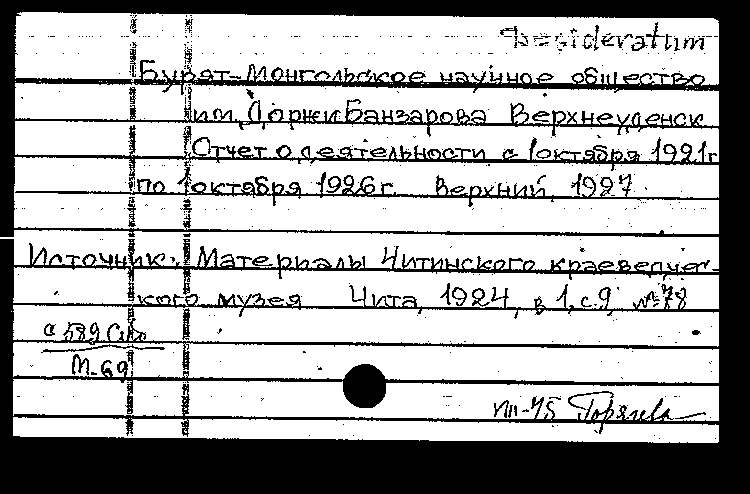 Desideratum
Бурят-Монгольское научное общество
им. Доржи Банзарова Верхнеуденск
Отчет о деятельности с 1 октября 1921г
по 1 октября 1926г. Верхний, 1927.
Источник: Материалы Читинского краеведчес-
кого музея Чита, 1924, в 1, с.9, №78
с 589
М-69
VIII-75